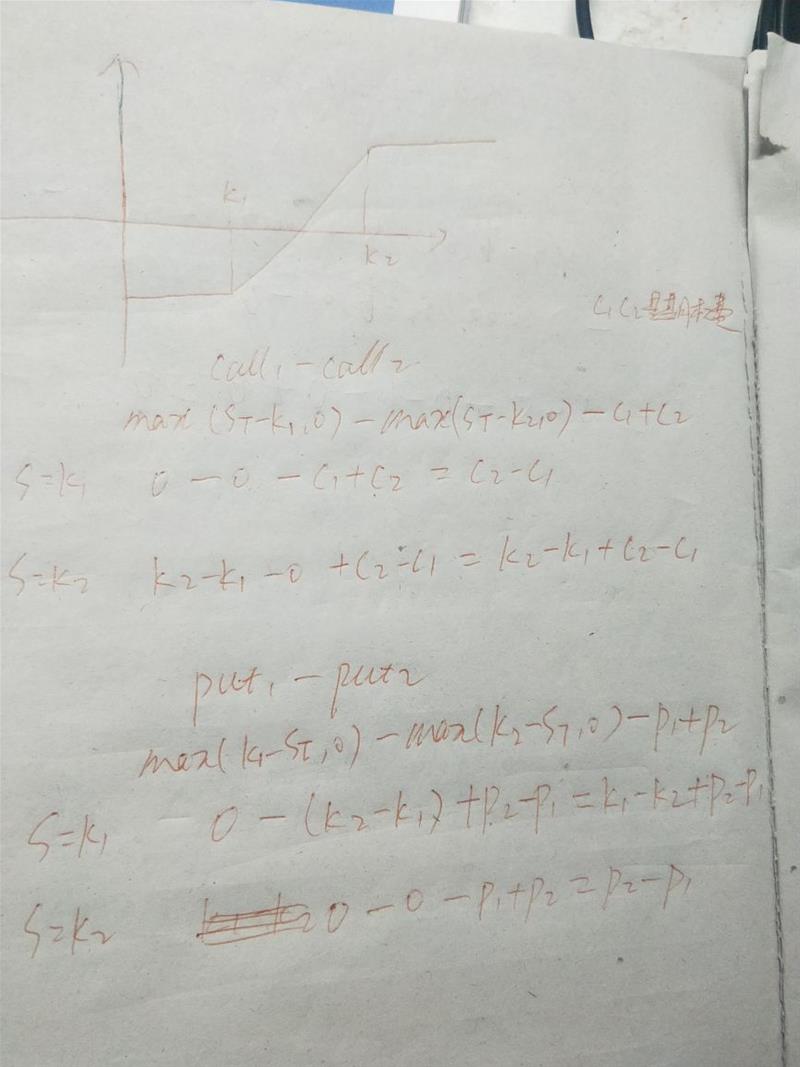 k₁
k₂
C₁C₂是期权费
call₁ - call₂
max (S_T-k₁,0) - max(S_T-k₂,0) - C₁+C₂
S=k₁ 0 - 0 - C₁+C₂ = C₂-C₁
S=k₂ k₂-k₁-0 +C₂-C₁ = k₂-k₁+C₂-C₁
put₁ - put₂
max(k₁-S_T,0) - max(k₂-S_T,0) - P₁+P₂
S=k₁ 0 - (k₂-k₁) + P₂-P₁ = k₁-k₂+P₂-P₁
S=k₂ 0 - 0 - P₁+P₂ = P₂-P₁